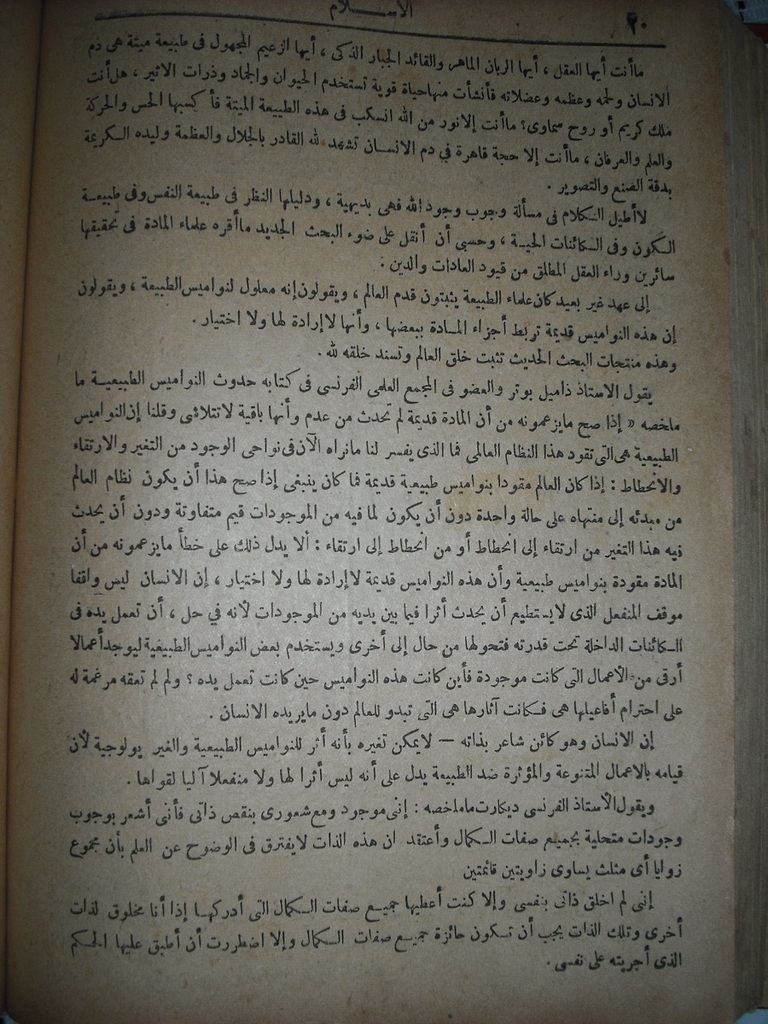 ٢٠
الاســـلام
ماأنت أيها العقل ، أيها الربان الماهر والقائد الجبار الذكى ، أيها الزعيم المجهول فى طبيعة ميتة هى دم
الانسان ولحمه وعظمه وعضلاته فأنشأت منهاحياة قوية تستخدم الحيوان والجماد وذرات الاثير ، هل أنت
ملك كريم أو روح سماوى؟ ماأنت إلانور من الله انسكب فى هذه الطبيعة الميتة فأ كسبها الحس والحركة
والعلم والعرفان ، ماأنت إلا حجة قاهرة فى دم الانسان تشهد لله القادر بالجلال والعظمة وليده الكريمة
بدقة الصنع والتصوير .
لاأطيل الكلام فى مسألة وجوب وجود الله فهى بديهية ، ودليلها النظر فى طبيعة النفس وفى طبيعة
الكون وفى الكائنات الحية ، وحسبى أن أنقل على ضوء البحث الجديد ماأقره علماء المادة فى تحقيقها
سائرين وراء العقل المطلق من قيود العادات والدين .
إلى عهد غير بعيد كان علماء الطبيعة يثبتون قدم العالم ، ويقولون إنه معلول لنواميس الطبيعة ، ويقولون
إن هذه النواميس قديمة تربط أجزاء المادة ببعضها ، وأنها لاإرادة لها ولا اختيار .
وهذه منتجات البحث الحديث تثبت خلق العالم وتسند خلقه لله .
يقول الاستاذ ذاميل بوتر والعضو فى المجمع العلمى الفرنسى فى كتابه حدوث النواميس الطبيعية ما
ملخصه « إذا صح مايزعمونه من أن المادة قديمة لم تحدث من عدم وأنها باقية لاتتلاشى وقلنا إن النواميس
الطبيعية هى التى تقود هذا النظام العالمى فما الذى يفسر لنا مانراه الآن فى نواحى الوجود من التغير والارتقاء
والانحطاط : إذا كان العالم مقودا بنواميس طبيعية قديمة فما كان ينبغى إذا صح هذا أن يكون نظام العالم
من مبدئه إلى منتهاه على حالة واحدة دون أن يكون لما فيه من الموجودات قيم متفاوتة ودون أن يحدث
فيه هذا التغير من ارتقاء إلى انحطاط أو من انحطاط إلى ارتقاء : ألا يدل ذلك على خطأ مايزعمونه من أن
المادة مقودة بنواميس طبيعية وأن هذه النواميس قديمة لاإرادة لها ولا اختيار ، إن الانسان ليس واقفا
موقف المنفعل الذى لايستطيع أن يحدث أثرا فيما بين يديه من الموجودات لأنه في حل ، أن تعمل يده فى
الكائنات الداخلة تحت قدرته فتحولها من حال إلى أخرى ويستخدم بعض النواميس الطبيعية ليوجد أعمالا
أرقى من الأعمال التى كانت موجودة فأين كانت هذه النواميس حين كانت تعمل يده ؟ ولم لم تعقه مرغمة له
على احترام أفاعيلها هى فكانت آثارها هى التى تبدو للعالم دون مايريده الانسان .
إن الانسان وهو كائن شاعر بذاته — لايمكن تغيره بأنه أثر للنواميس الطبيعية والغير يولوجية لأن
قيامه بالاعمال المتنوعة والمؤثرة ضد الطبيعة يدل على أنه ليس أثرا لها ولا منفعلا آليا لقواها .
ويقول الأستاذ الفرنسى ديكارت ماملخصه : إنى موجود ومع شعورى بنقص ذاتى فأنى أشعر بوجوب
وجودات متحلية بجميع صفات الكمال وأعتقد ان هذه الذات لايفترق فى الوضوح عن العلم بأن مجموع
زوايا أى مثلث يساوى زاويتين قائمتين
إنى لم اخلق ذاتى بنفسى وإلا كنت أعطيها جميع صفات الكمال التى أدركها إذا أنا مخلوق لذات
أخرى وتلك الذات يجب أن تكون حائزة جميع صفات الكمال وإلا اضطررت أن أطبق عليها الحكم
الذى أجريته على نفسى .